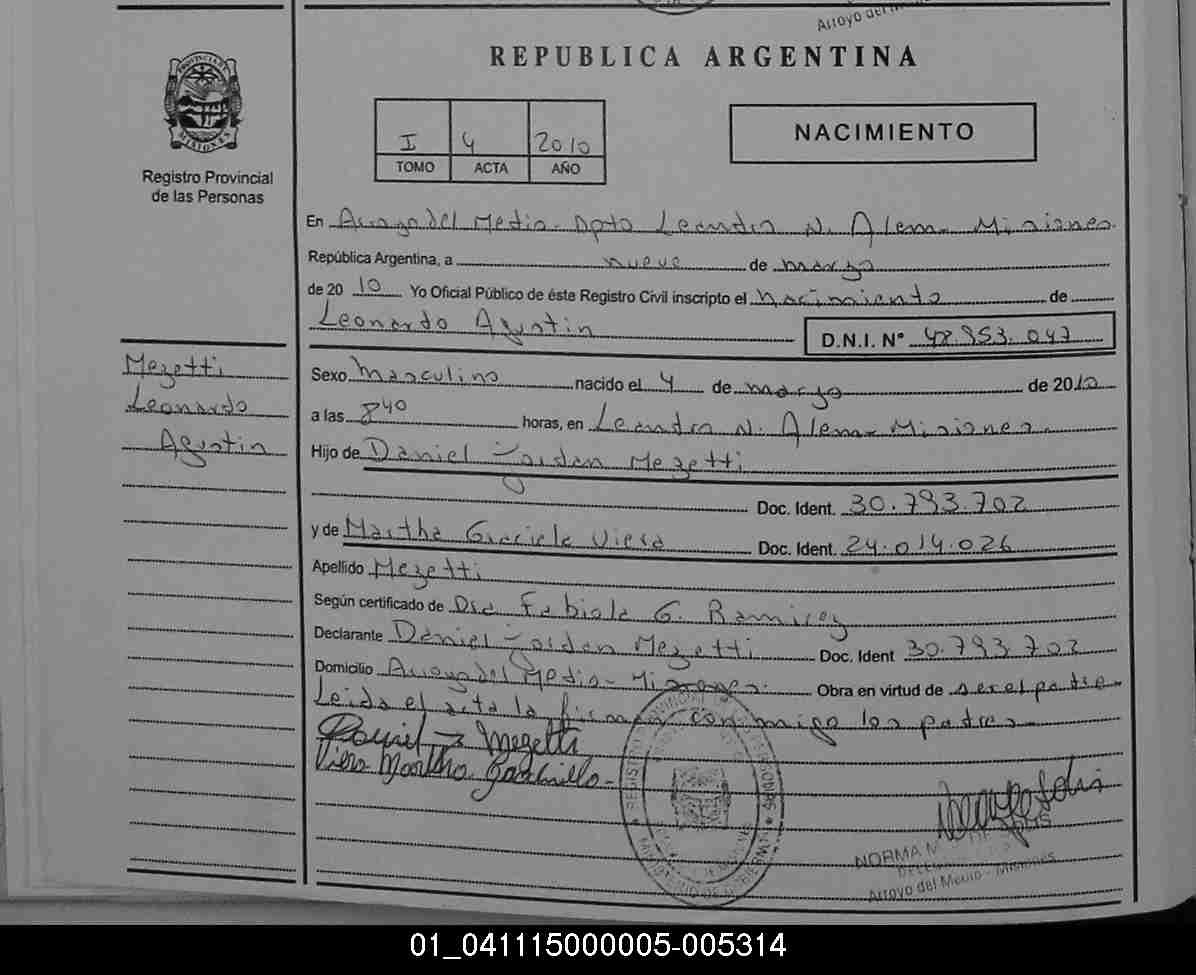 Arroyo del
REPUBLICA ARGENTINA
PROVINCIA DE
MISIONES
Registro Provincial
de las Personas
I 4 2010
TOMO ACTA AÑO
NACIMIENTO
En Arroyo del Medio - Dpto Leandro N. Alem - Misiones.
República Argentina, a nueve de marzo
de 2010 Yo Oficial Público de éste Registro Civil inscripto el Nacimiento de
Leonardo Agustin
D.N.I. Nº 48.953.047
Mezetti
Leonardo
Agustin
Sexo Masculino nacido el 4 de marzo de 2010
a las 8 40 horas, en Leandro N. Alem - Misiones.
Hijo de Daniel Jordan Mezetti
Doc. Ident. 30.793.702
y de Martha Graciela Viera Doc. Ident. 24.014.026
Apellido Mezetti
Según certificado de Dra Fabiola G. Ramirez
Declarante Daniel Jordan Mezetti Doc. Ident 30.793.702
Domicilio Arroyo del Medio - Misiones. Obra en virtud de ser el padre -
Leida el acta la firman conmigo los padres -
Daniel J Mezetti
Viera Martha
NORMA
Arroyo del Medio - Misiones
01_041115000005-005314